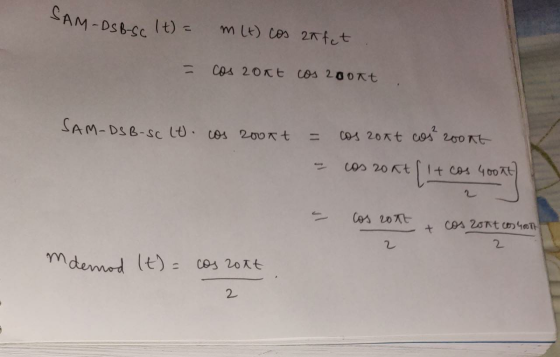 S AM-DSB-SC (t) = m(t) cos 2πfct
= cos 20πt cos 200πt .
S AM-DSB-SC (t) . cos 200πt = cos 20πt cos² 200πt
= cos 20πt [ (1 + cos 400πt) / 2 ]
= cos 20πt / 2 + cos 20πt cos 400πt / 2
m demod (t) = cos 20πt / 2 .